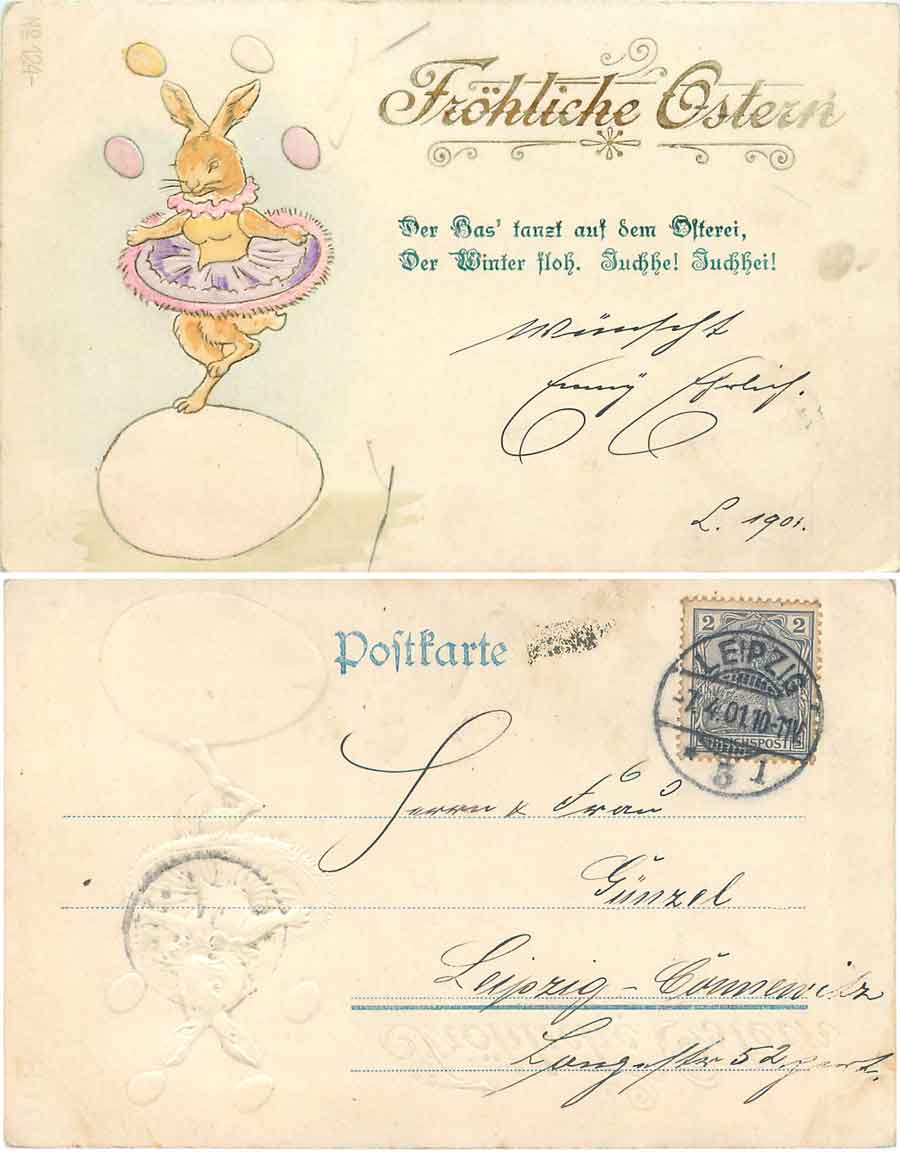 No 124-
Fröhliche Ostern
Der Has' tanzt auf dem Osterei,
Der Winter floh. Juchhe! Juchhei!
wünscht
Emmÿ Ehrlich.
L. 1901.
Postkarte
2 2
REICHSPOST
LEIPZIG
7.4.01.10-11V.
* 3 1
Herrn & Frau
Günzel
Leipzig-Connewitz
Langestr 52 part.